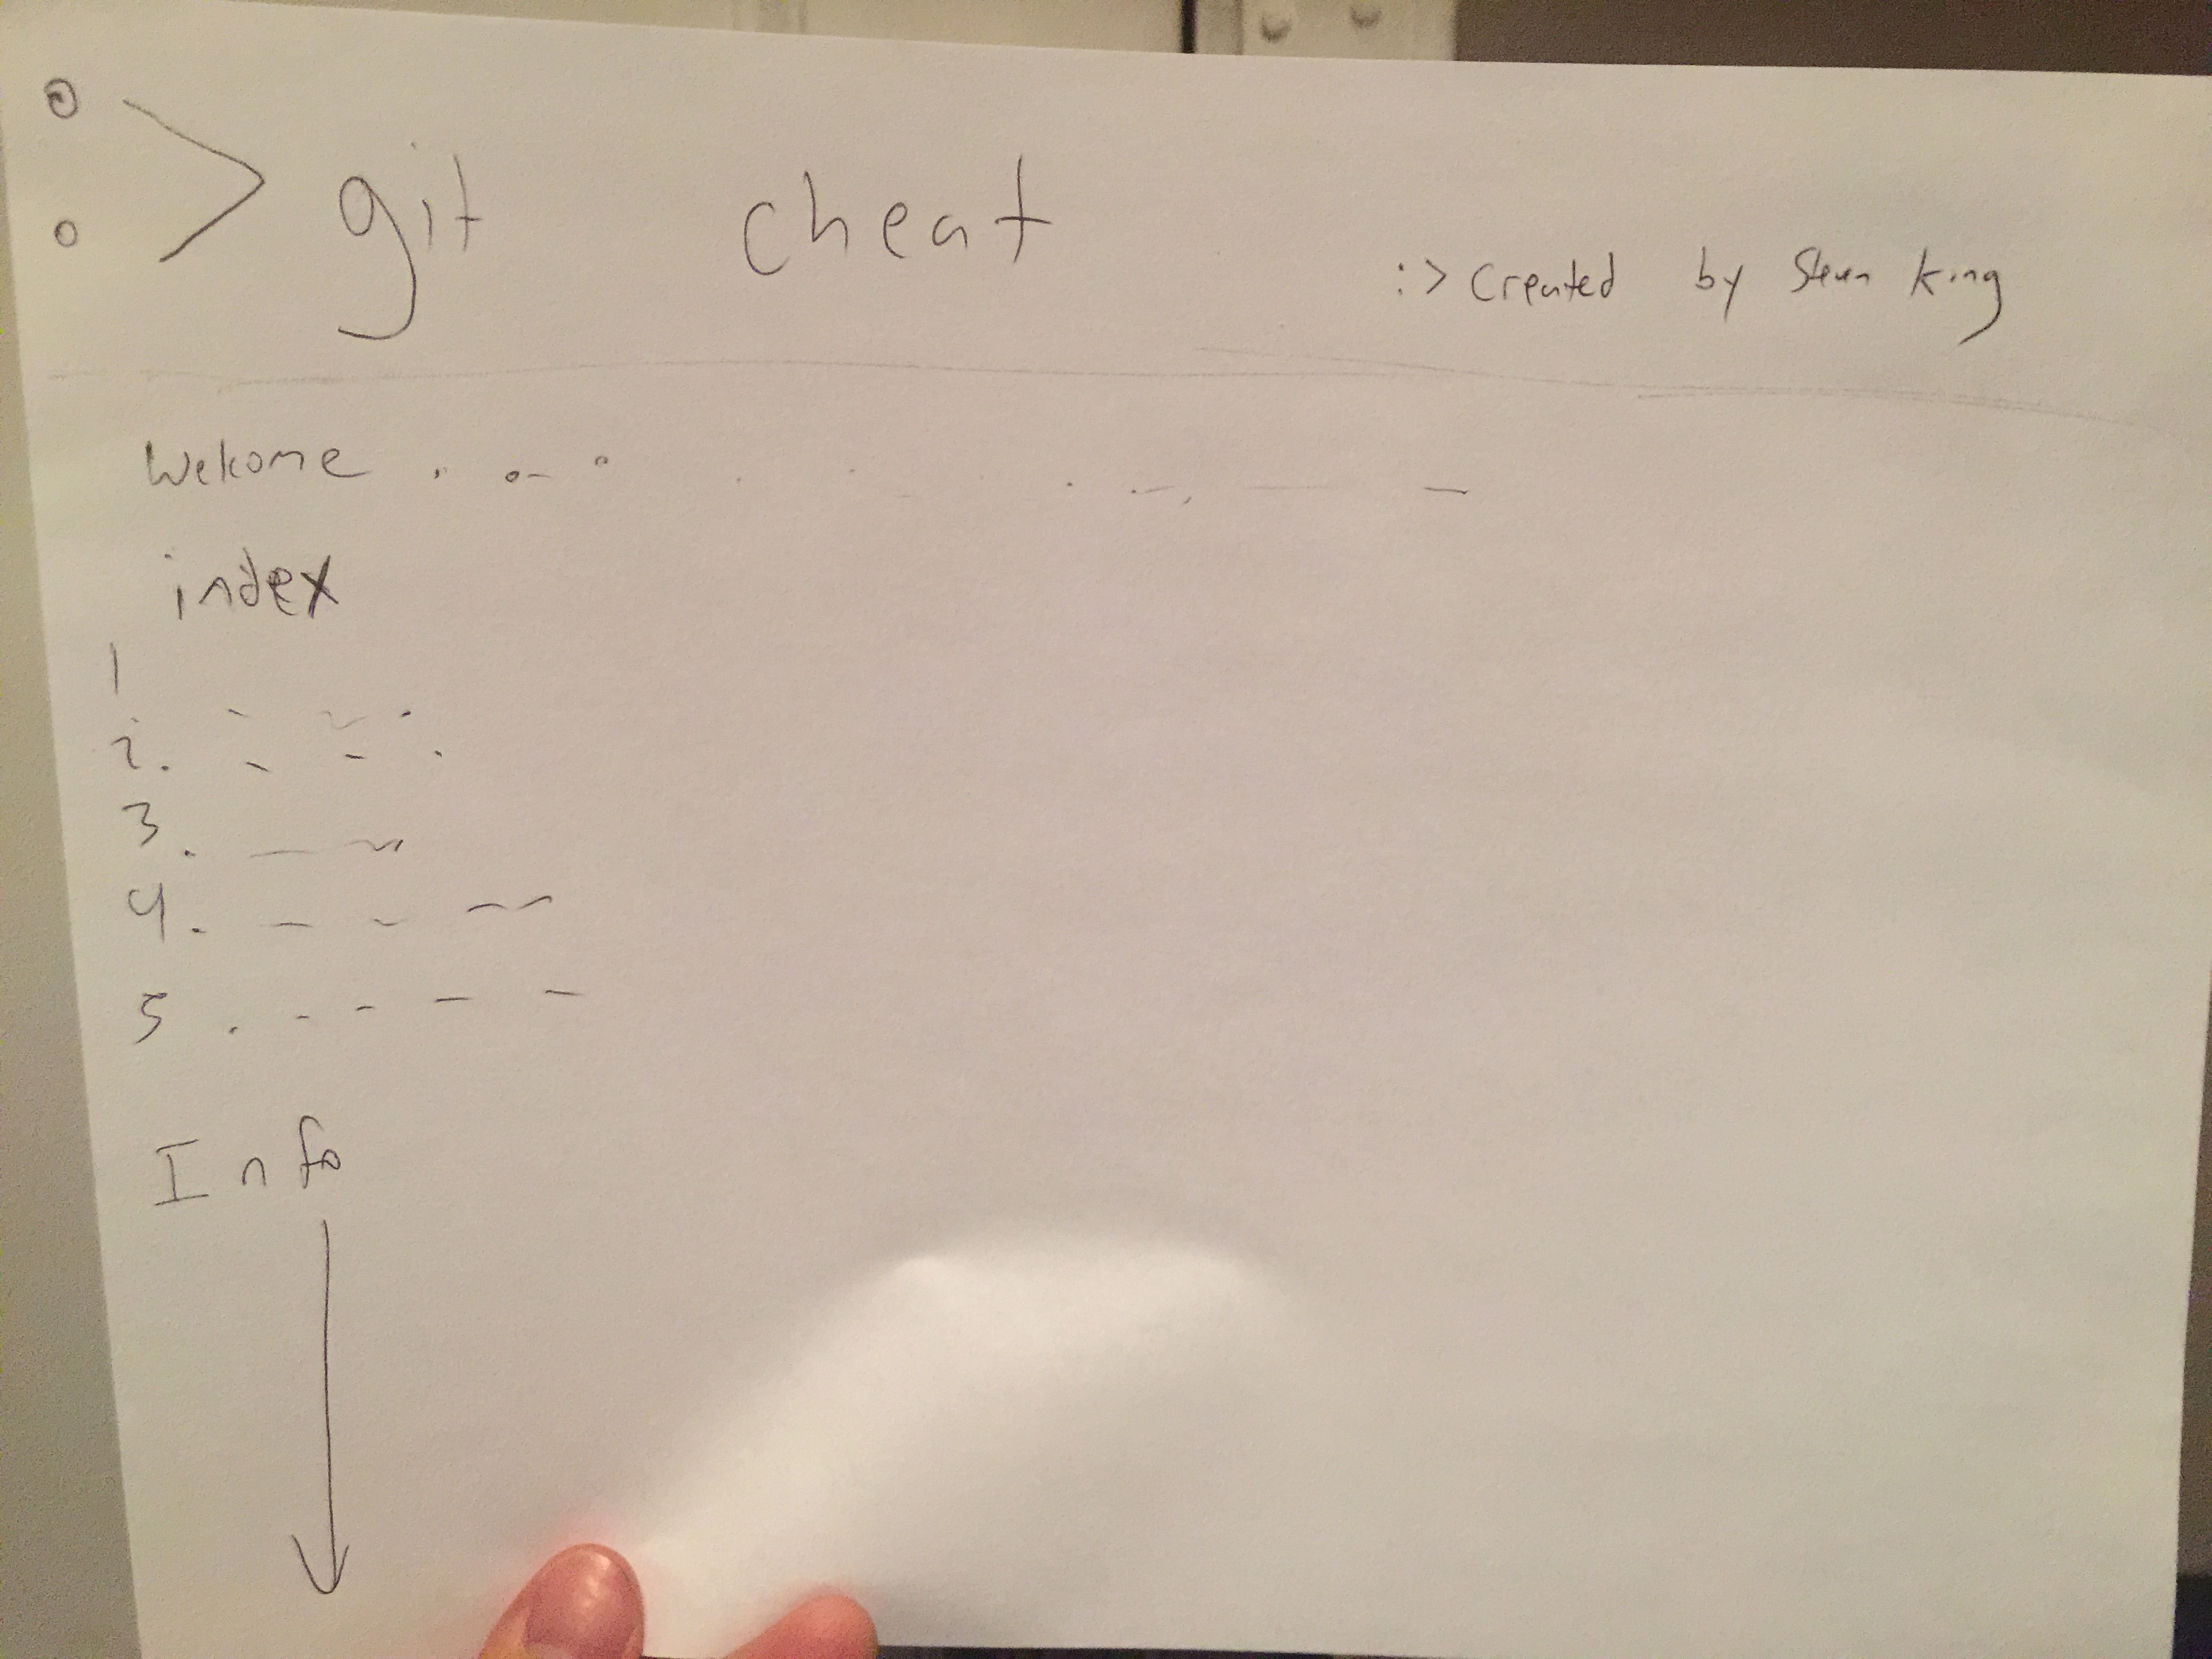 :> git cheat
:> Created by Steven King
Welcome
index
1
2.
3.
4.
5.
Info